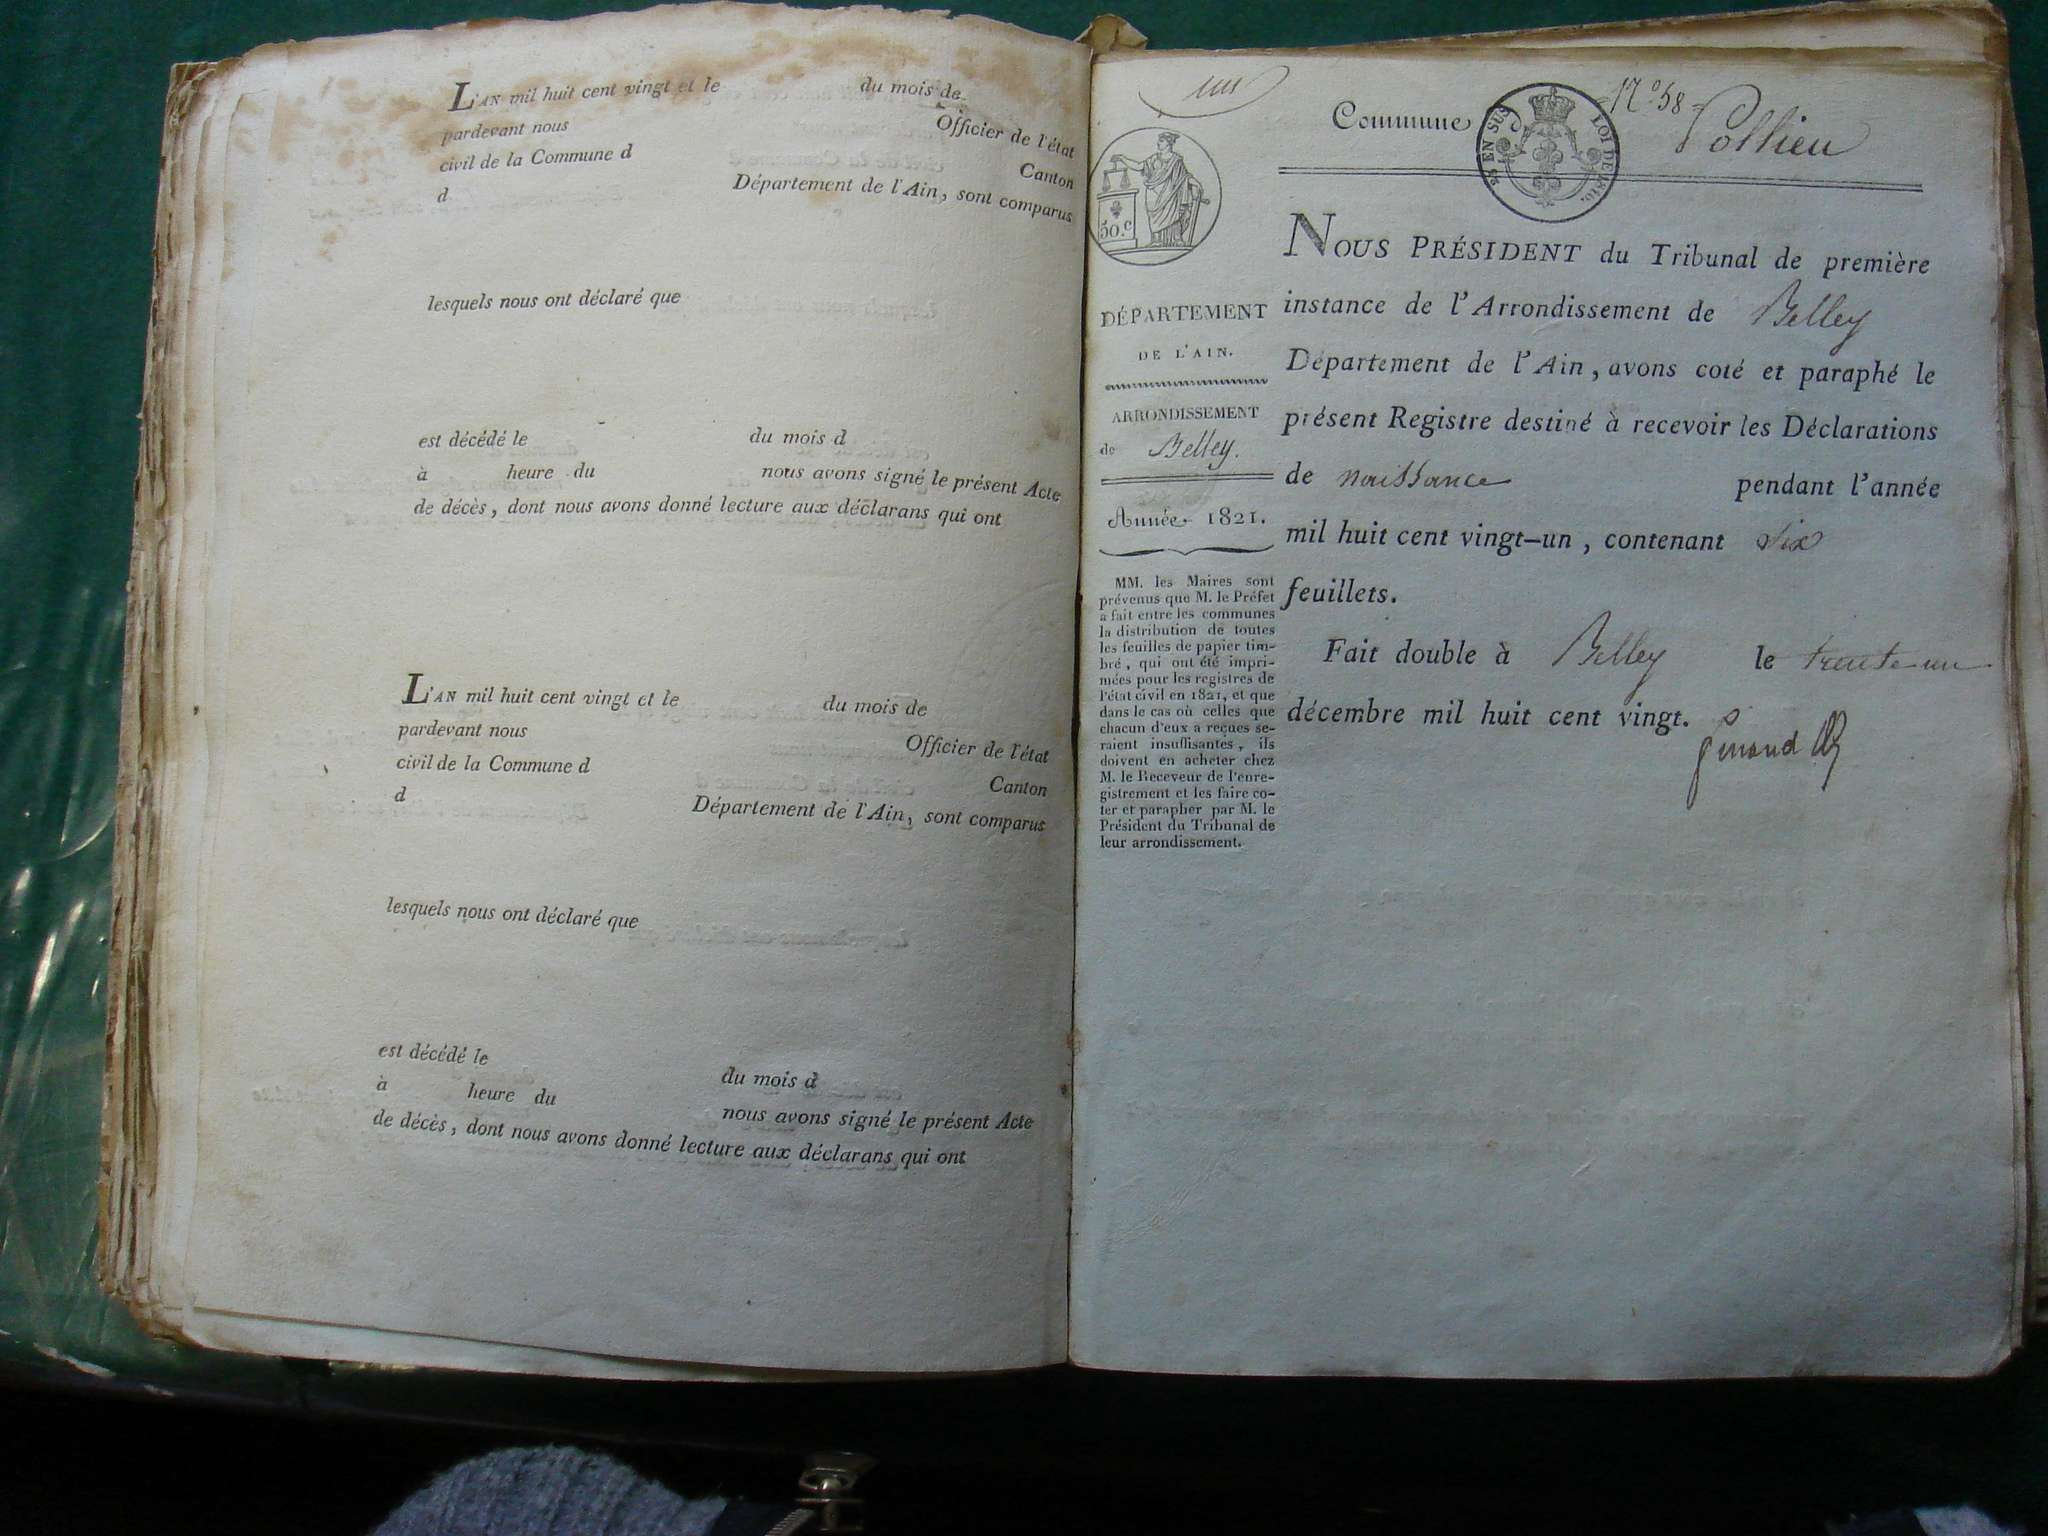 L'AN mil huit cent vingt et le du mois de
pardevant nous Officier de l'état
civil de la Commune d Canton
d Département de l'Ain, sont comparus
lesquels nous ont déclaré que
est décédé le du mois d
à heure du nous avons signé le présent Acte
de décès, dont nous avons donné lecture aux déclarans qui ont
L'AN mil huit cent vingt et le du mois de
pardevant nous Officier de l'état
civil de la Commune d Canton
d Département de l'Ain, sont comparus
lesquels nous ont déclaré que
est décédé le du mois d
à heure du nous avons signé le présent Acte
de décès, dont nous avons donné lecture aux déclarans qui ont
N.º 58
Commune Pollieu
EN SUS LOI DE 1816.
50.c
DÉPARTEMENT
DE L'AIN.
ARRONDISSEMENT
de Belley.
Année 1821.
MM. les Maires sont
prévenus que M. le Préfet
a fait entre les communes
la distribution de toutes
les feuilles de papier tim-
bré, qui ont été impri-
mées pour les registres de
l'état civil en 1821, et que
dans le cas où celles que
chacun d'eux a reçues se-
raient insuffisantes, ils
doivent en acheter chez
M. le Receveur de l'enre-
gistrement et les faire co-
ter et parapher par M. le
Président du Tribunal de
leur arrondissement.
NOUS PRÉSIDENT du Tribunal de première
instance de l'Arrondissement de Belley
Département de l'Ain, avons coté et paraphé le
présent Registre destiné à recevoir les Déclarations
de naissance pendant l'année
mil huit cent vingt-un, contenant six
feuillets.
Fait double à Belley le trente un
décembre mil huit cent vingt.